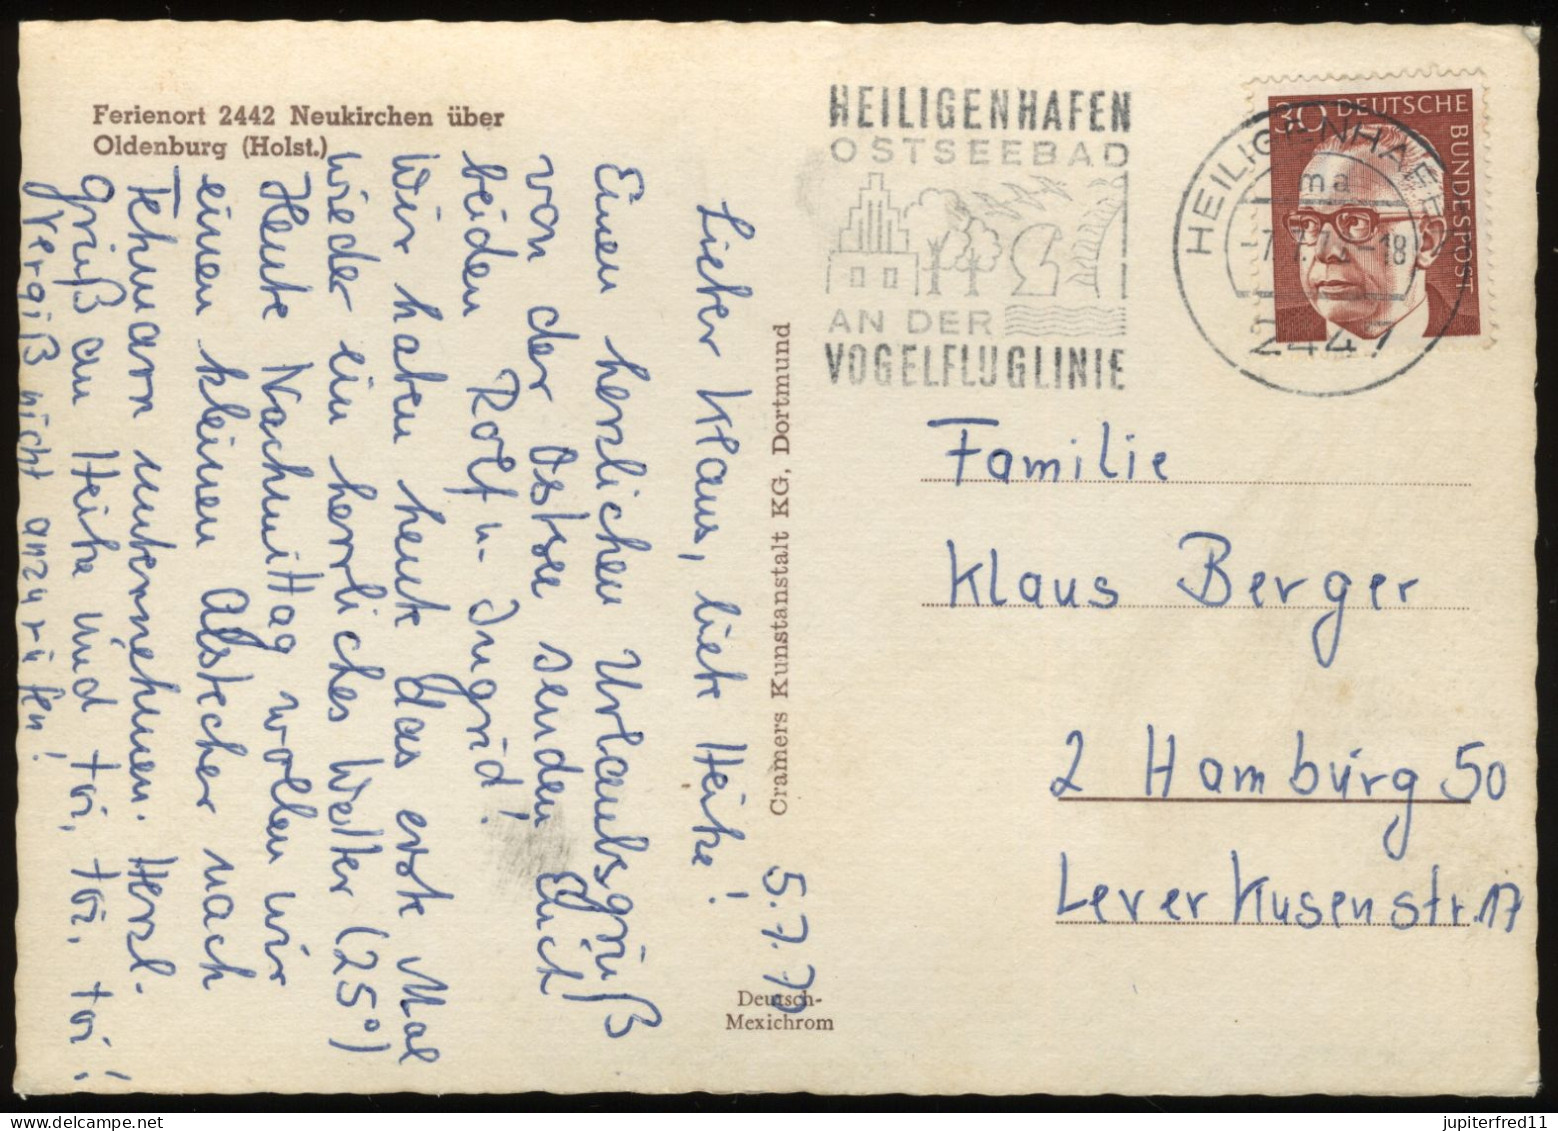 Ferienort 2442 Neukirchen über
Oldenburg (Holst.)
5.7.73
Lieber Klaus, liebe Heike!
Einen herzlichen Urlaubsgruß
von der Ostsee senden Euch
beiden Rolf u. Ingrid!
Wir haben heute das erste Mal
wieder ein herrliches Wetter (25°)
Heute Nachmittag wollen wir
einen kleinen Abstecher nach
Fehmarn unternehmen. Herzl.
Gruß an Heike und toi, toi, toi!
Vergiß nicht anzurufen!
Cramers Kunstanstalt KG, Dortmund
Deutsch-
Mexichrom
HEILIGENHAFEN
OSTSEEBAD
AN DER
VOGELFLUGLINIE
HEILIGENHAFEN
ma
-18
2447
30 DEUTSCHE
BUNDESPOST
Familie
Klaus Berger
2 Hamburg 50
Leverkusenstr. 17
jupiterfred11